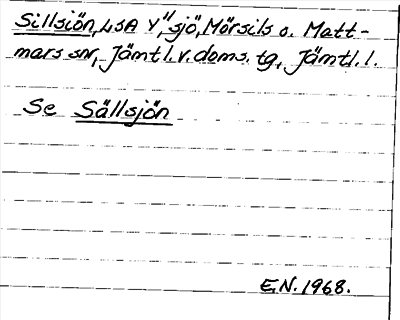 Sillsjön, LSA Y", sjö, Mörsils o. Matt-
mars snr, Jämtl. v. doms. tg, Jämtl. l.
Se Sällsjön
E.N. 1968.